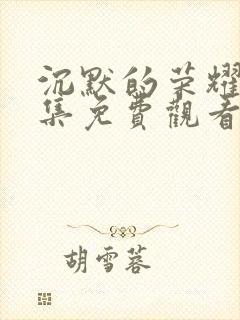 沉默的荣耀
集免費觀看
胡雪蓉